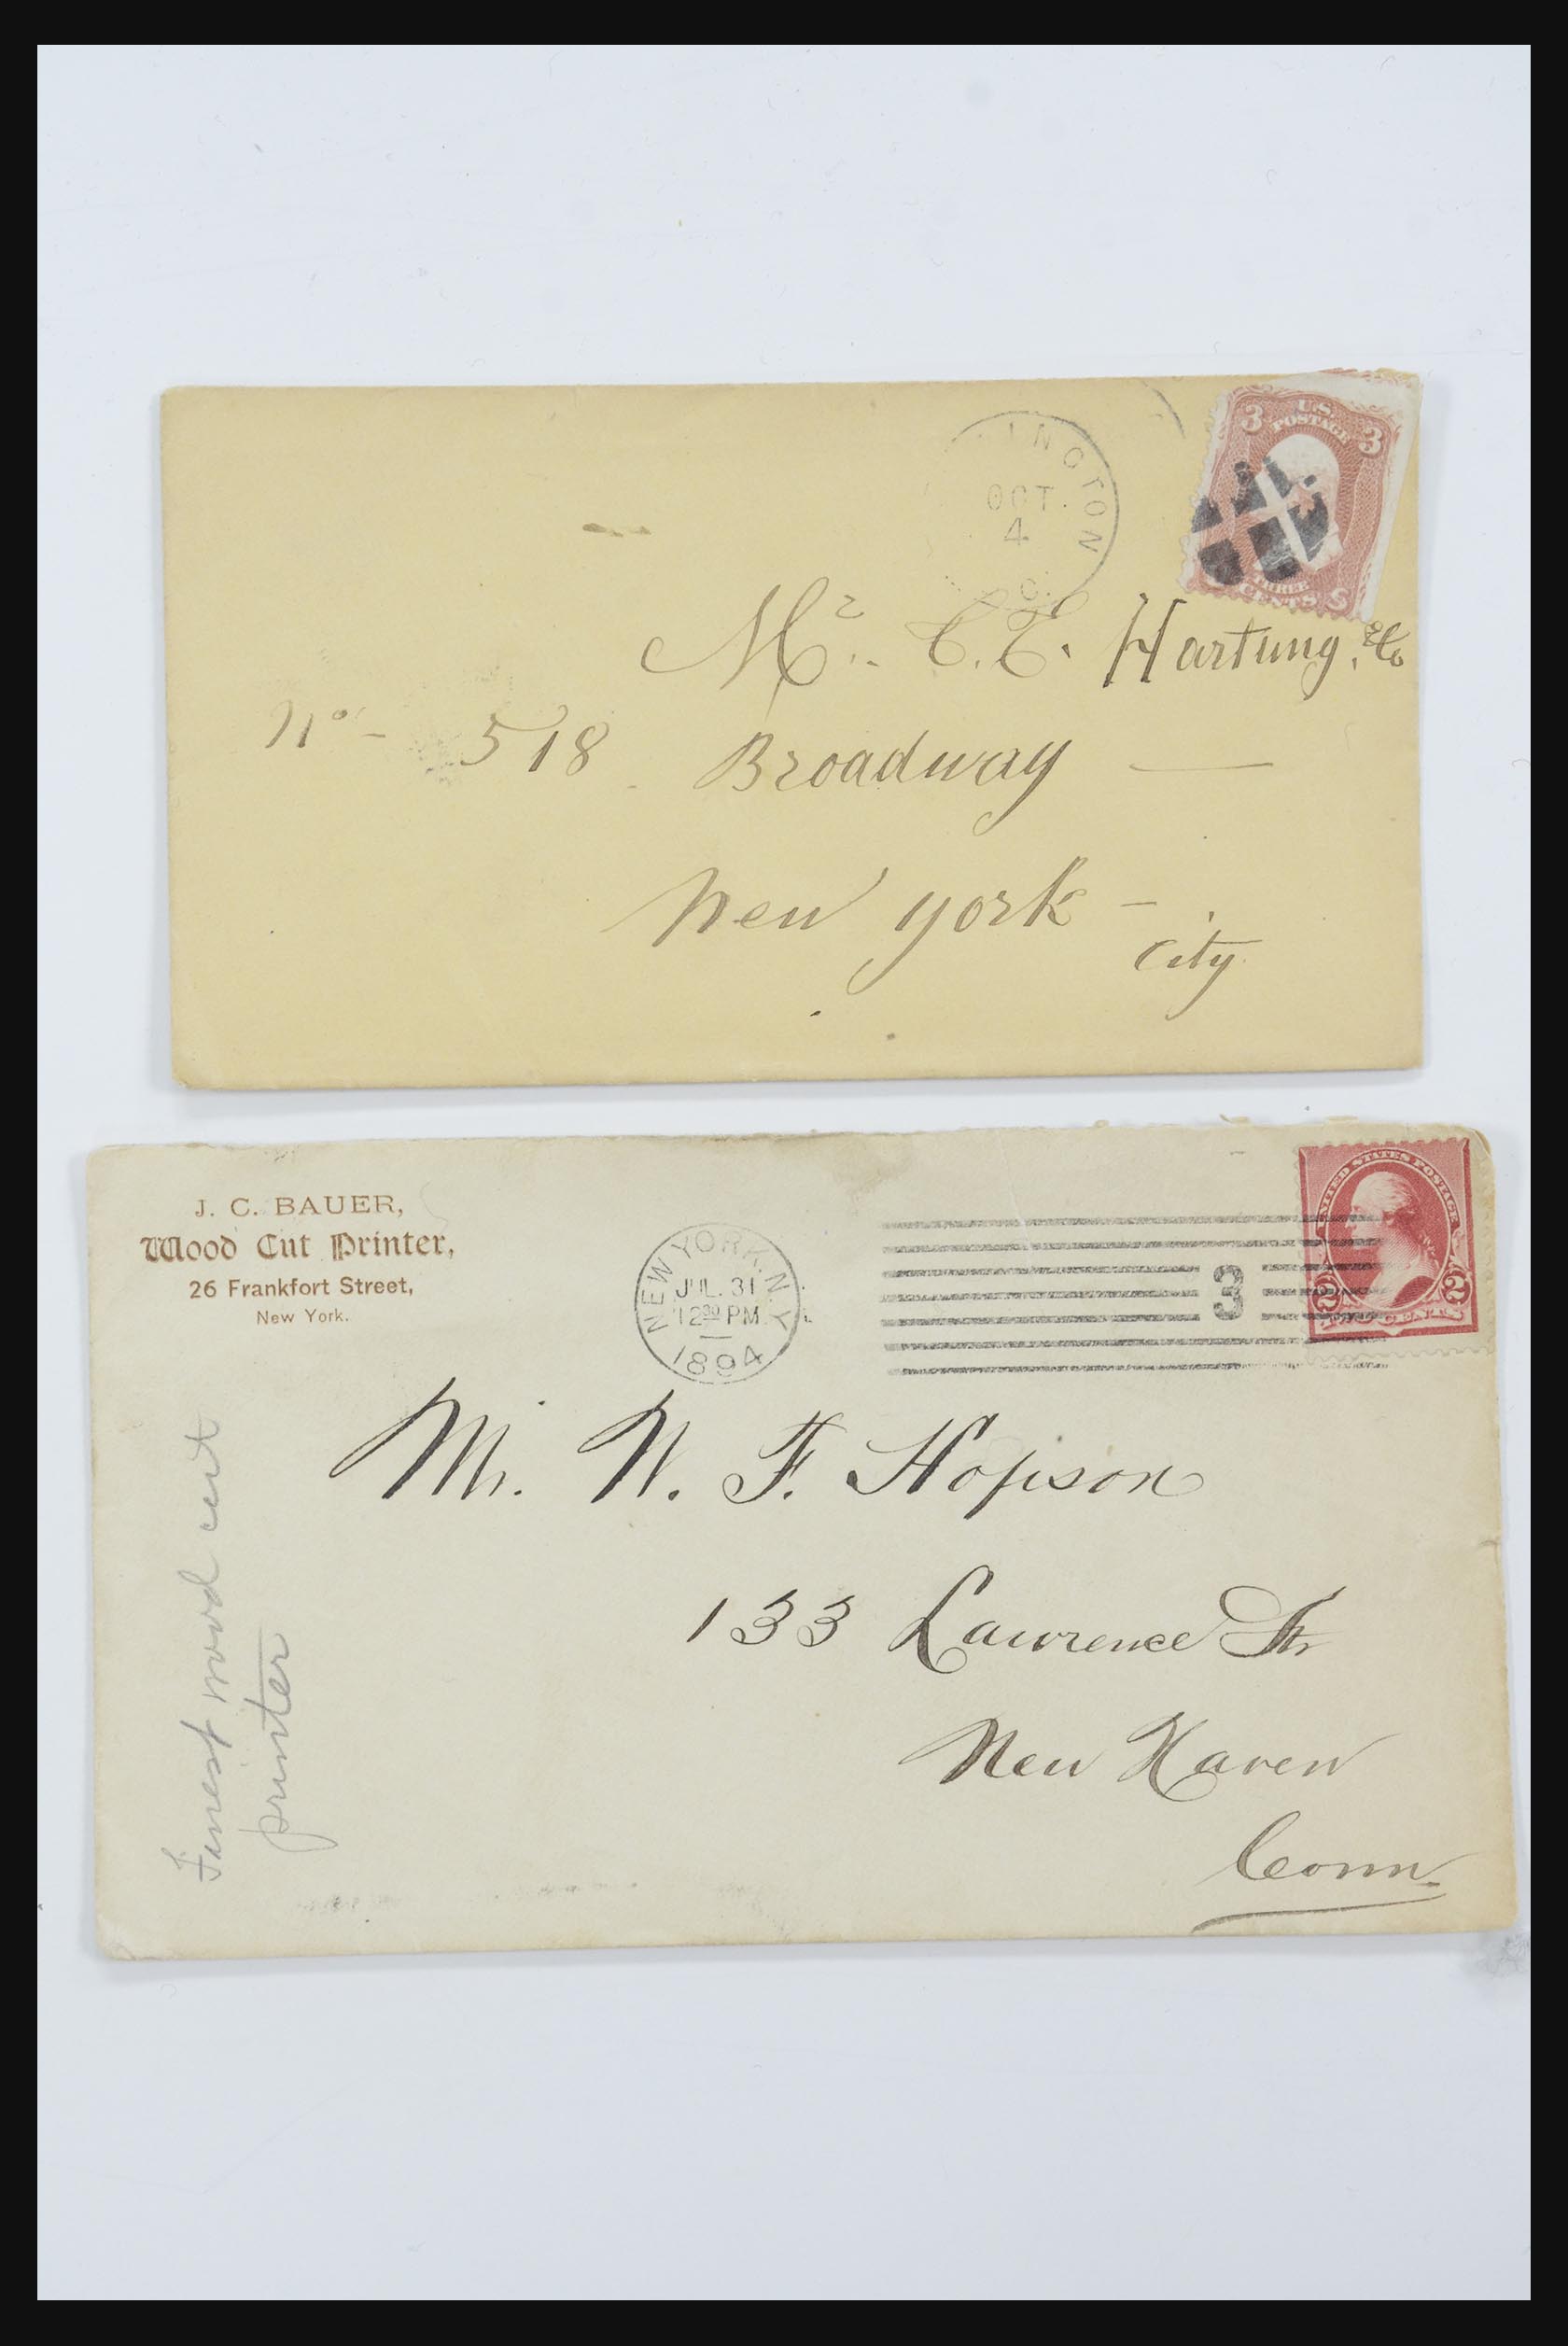 U.S. POSTAGE
3 3
THREE CENTS
INGTON
OCT. 4
Mr. C. E. Hartung, & Co
No - 518 Broadway —
New York -
City
J. C. BAUER,
Wood Cut Printer,
26 Frankfort Street,
New York.
NEW YORK. N.Y.
JUL. 31
12 30 PM
1894
3
UNITED STATES POSTAGE
2 2
TWO CENTS
Mr. W. F. Hopson
133 Lawrence St
New Haven
Conn.
Finest wood cut
printer